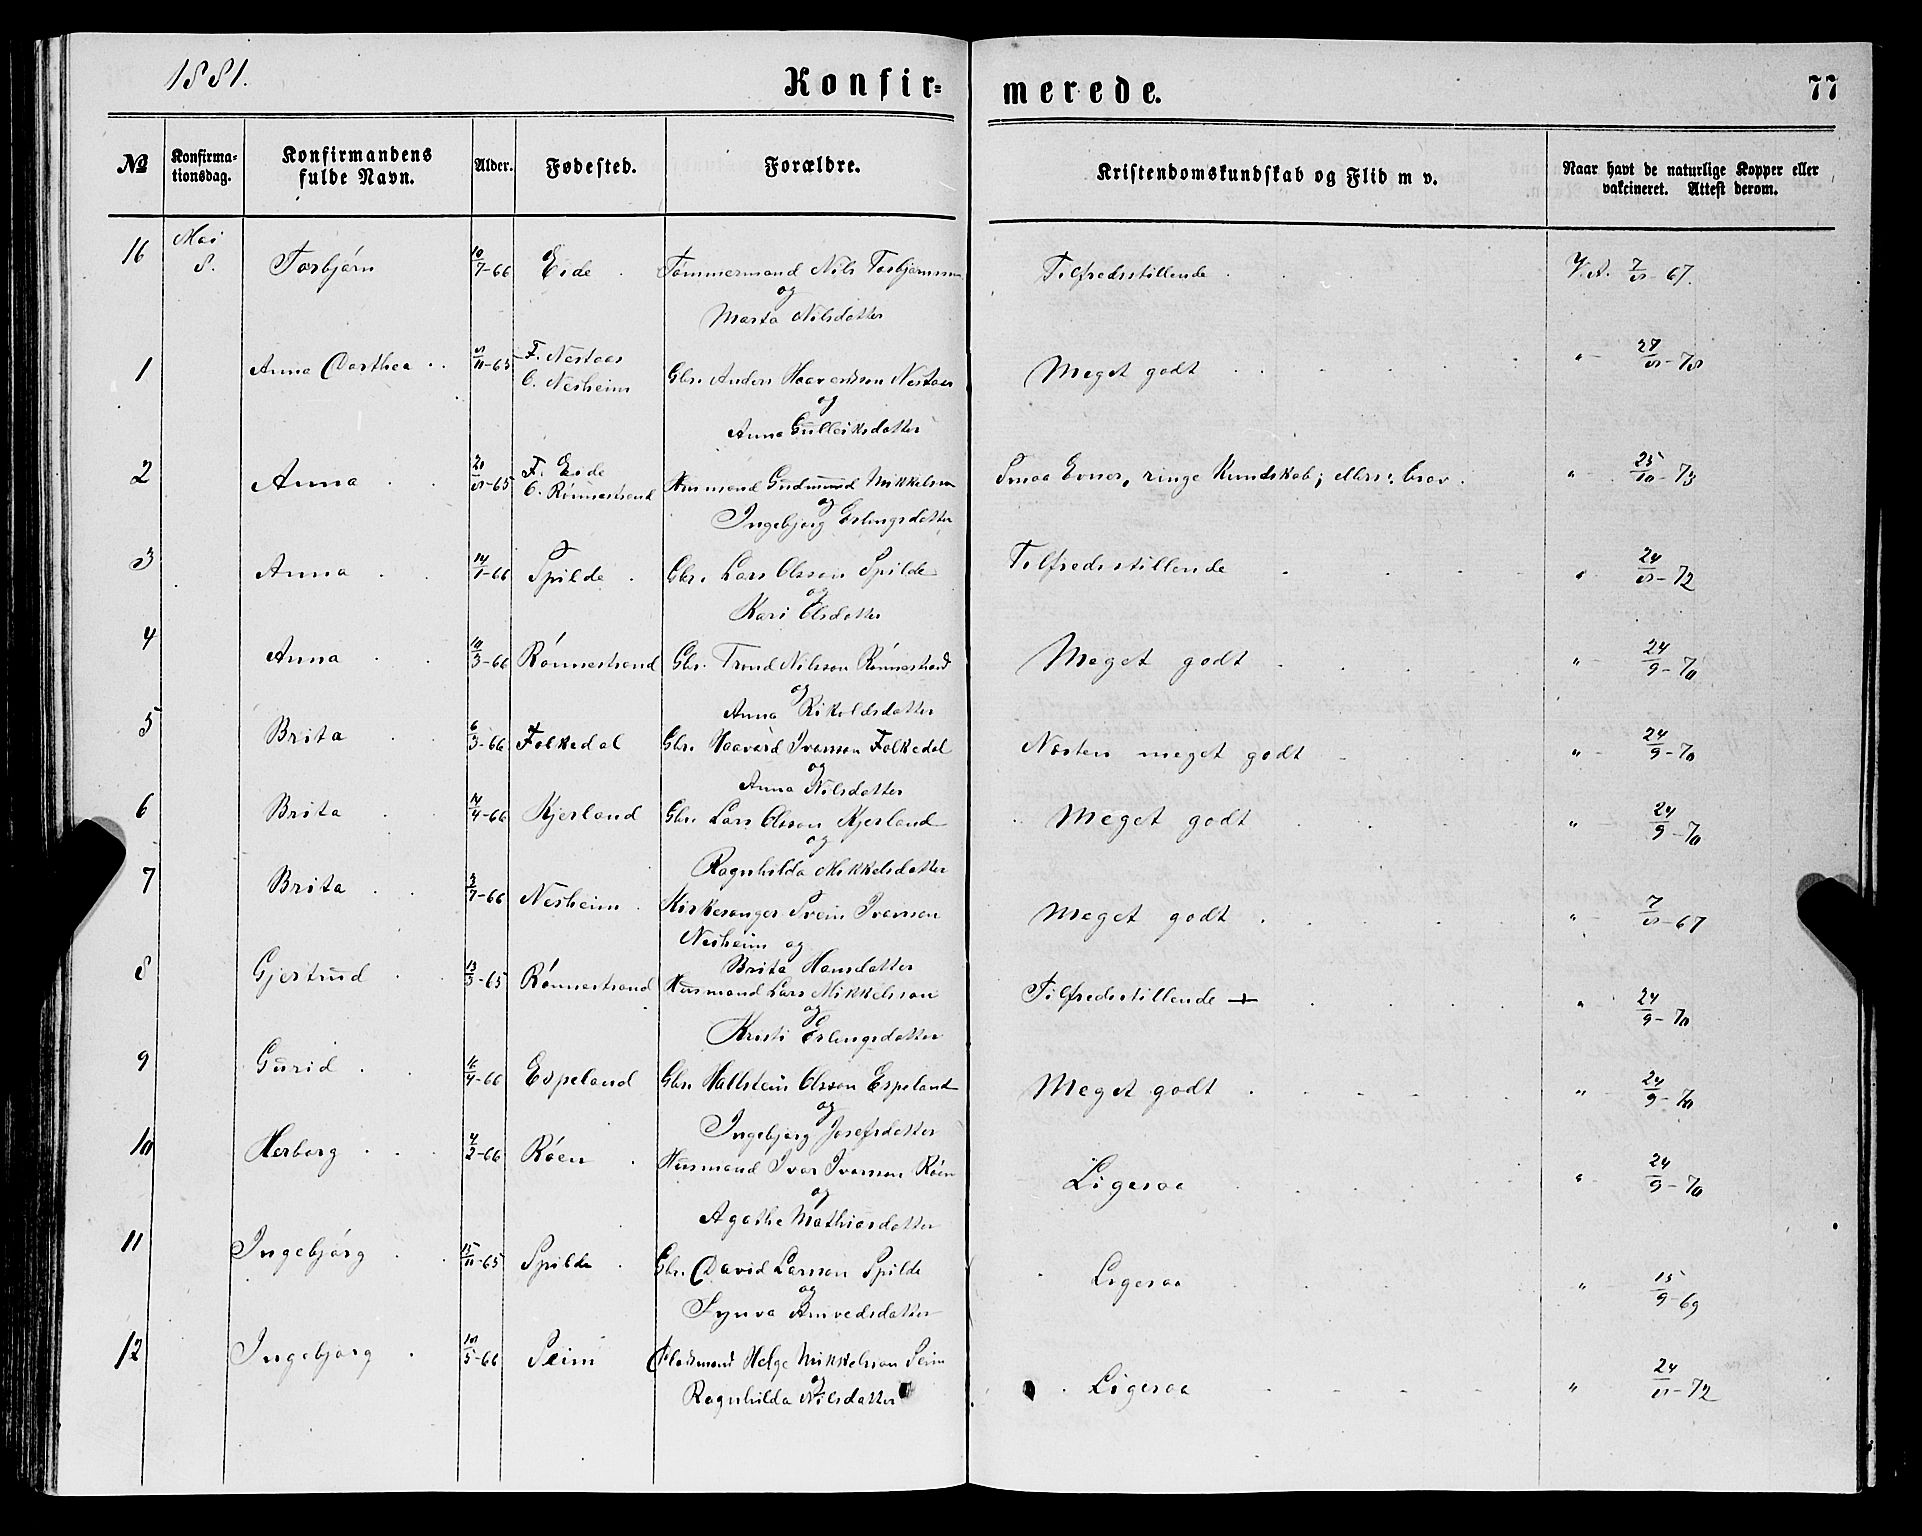 1881.
Konfir= merede. 77
№ Konfirma-tionsdag. Konfirmandens fulde Navn. Alder. Fødested. Forældre. Kristendomskundskab og Flid m v. Naar havt de naturlige Kopper eller vakcineret. Attest derom.
Mai
16 8. Torbjørn 10/7-66 Eide Tømmermand Nils Torbjørnson Tilfredsstillende V.A. 7/8-67.
og
Marta Nilsdatter
F. Nestaas
1 Anna Dorthea 8/11-65 C. Nesheim Gbr. Anders Haavardson Nestaas Meget godt " 27/8-78
og
Anna Gulleiksdatter
F. Eide
2 Anna 20/8-65 C. Rønnestrand Husmand Gudmund Mikkelson Smaa Evner, ringe Kundskab; ellers: brav. " 25/10-73
og
Ingebjørg Erlingsdatter
3 Anna 14/1-66 Spilde Gbr. Lars Olsson Spilde Tilfredsstillende " 24/8-72
og
Kari Olsdatter
4 Anna 10/3-66 Rønnestrand Gbr. Trond Nilsson Rønnestrand Meget godt " 24/9-70
og
Anna Rikoldsdatter
5 Brita 6/3-66 Folkedal Gbr. Haavard Ivarson Folkedal Næsten meget godt " 24/9-70
og
Anna Nilsdatter
6 Brita 14/4-66 Kjerland Gbr. Lars Olsson Kjerland Meget godt " 24/9-70
og
Ragnhilda Mikkelsdatter
7 Brita 3/7-66 Nesheim Kirkesanger Svein Ivarson Meget godt " 7/8-67
Nesheim og
Brita Hansdatter
8 Gjertrud 13/3-65 Rønnestrand Husmand Lars Mikkelsson Tilfredsstillende + " 24/9-70
og
Kristi Erlingsdatter
9 Gurid 16/4-66 Espeland Gbr. Hallstein Olsson Espeland Meget godt " 24/9-70
og
Ingebjørg Josefsdatter
10 Herborg 4/2-66 Røen Husmand Ivar Ivarson Røen Ligesaa " 24/9-70
og
Agathe Mathiasdatter
11 Ingebjørg 15/11-65 Spilde Gbr. David Larsson Spilde Ligesaa " 15/9-69
og
Synva Amvedsdatter
12 Ingebjørg 18/5-66 Seim Pladsmand Helge Mikkelsson Seim Ligesaa " 24/8-72
og
Ragnhilda Nilsdatter